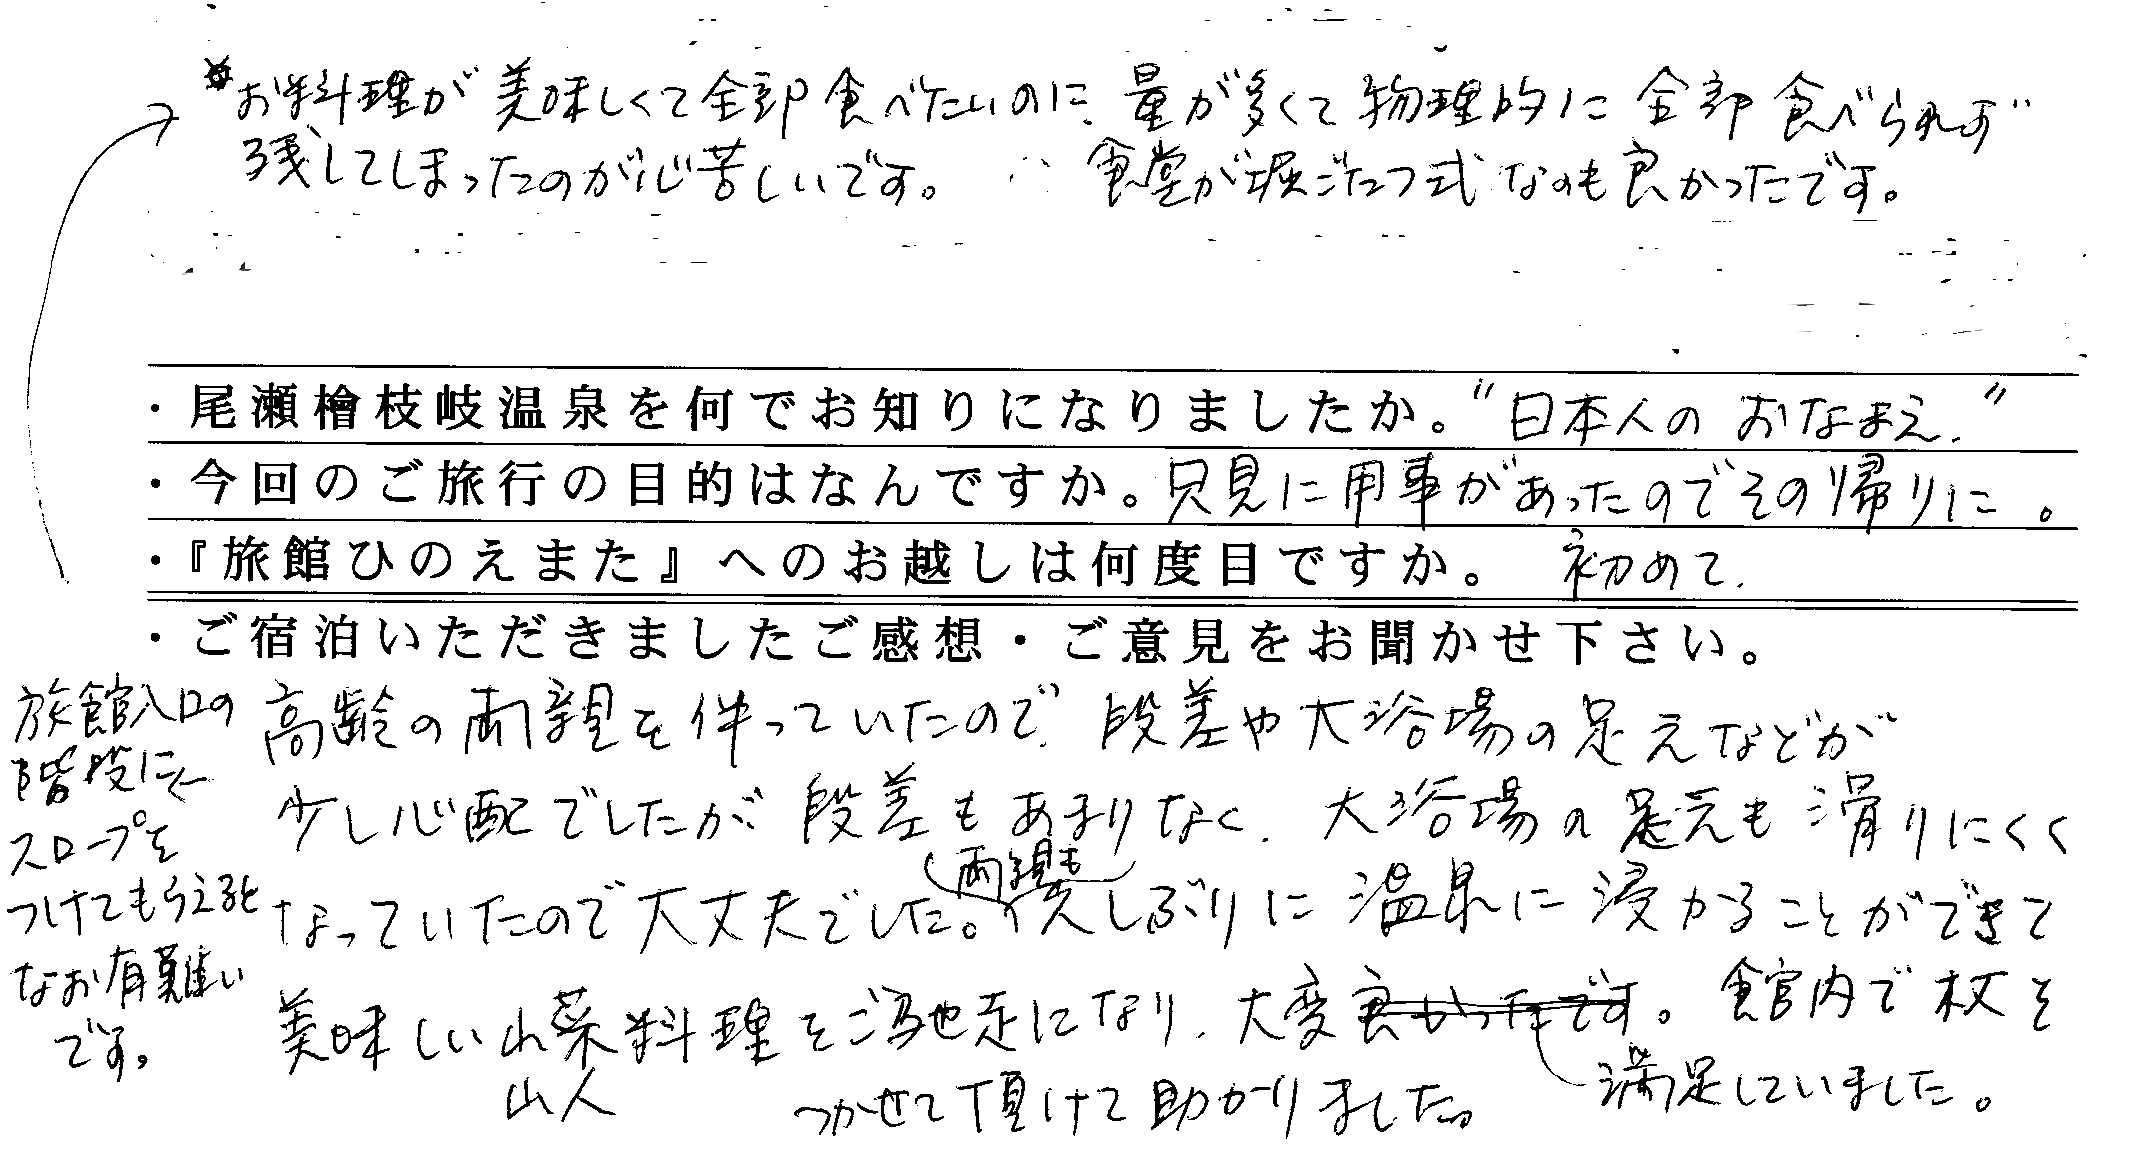 *お料理が美味しくて全部食べたいのに、量が多くて物理的に全部食べられず
残してしまったのが心苦しいです。 食堂が堀ごたつ式なのも良かったです。
・尾瀬檜枝岐温泉を何でお知りになりましたか。“日本人のおなまえ.”
・今回のご旅行の目的はなんですか。只見に用事があったのでその帰りに。
・『旅館ひのえまた』へのお越しは何度目ですか。 初めて.
・ご宿泊いただきましたご感想・ご意見をお聞かせ下さい。
高齢の両親を伴っていたので、段差や大浴場の足元などが
少し心配でしたが段差もあまりなく、大浴場の足元も滑りにくく
なっていたので大丈夫でした。両親も久しぶりに温泉に浸かることができて
美味しい山菜料理をご馳走になり、大変良かったです。館内で杖を
山人
つかせて頂けて助かりました。
満足していました。
旅館入口の
階段に
スロープを
つけてもらえると
なお有難い
です。